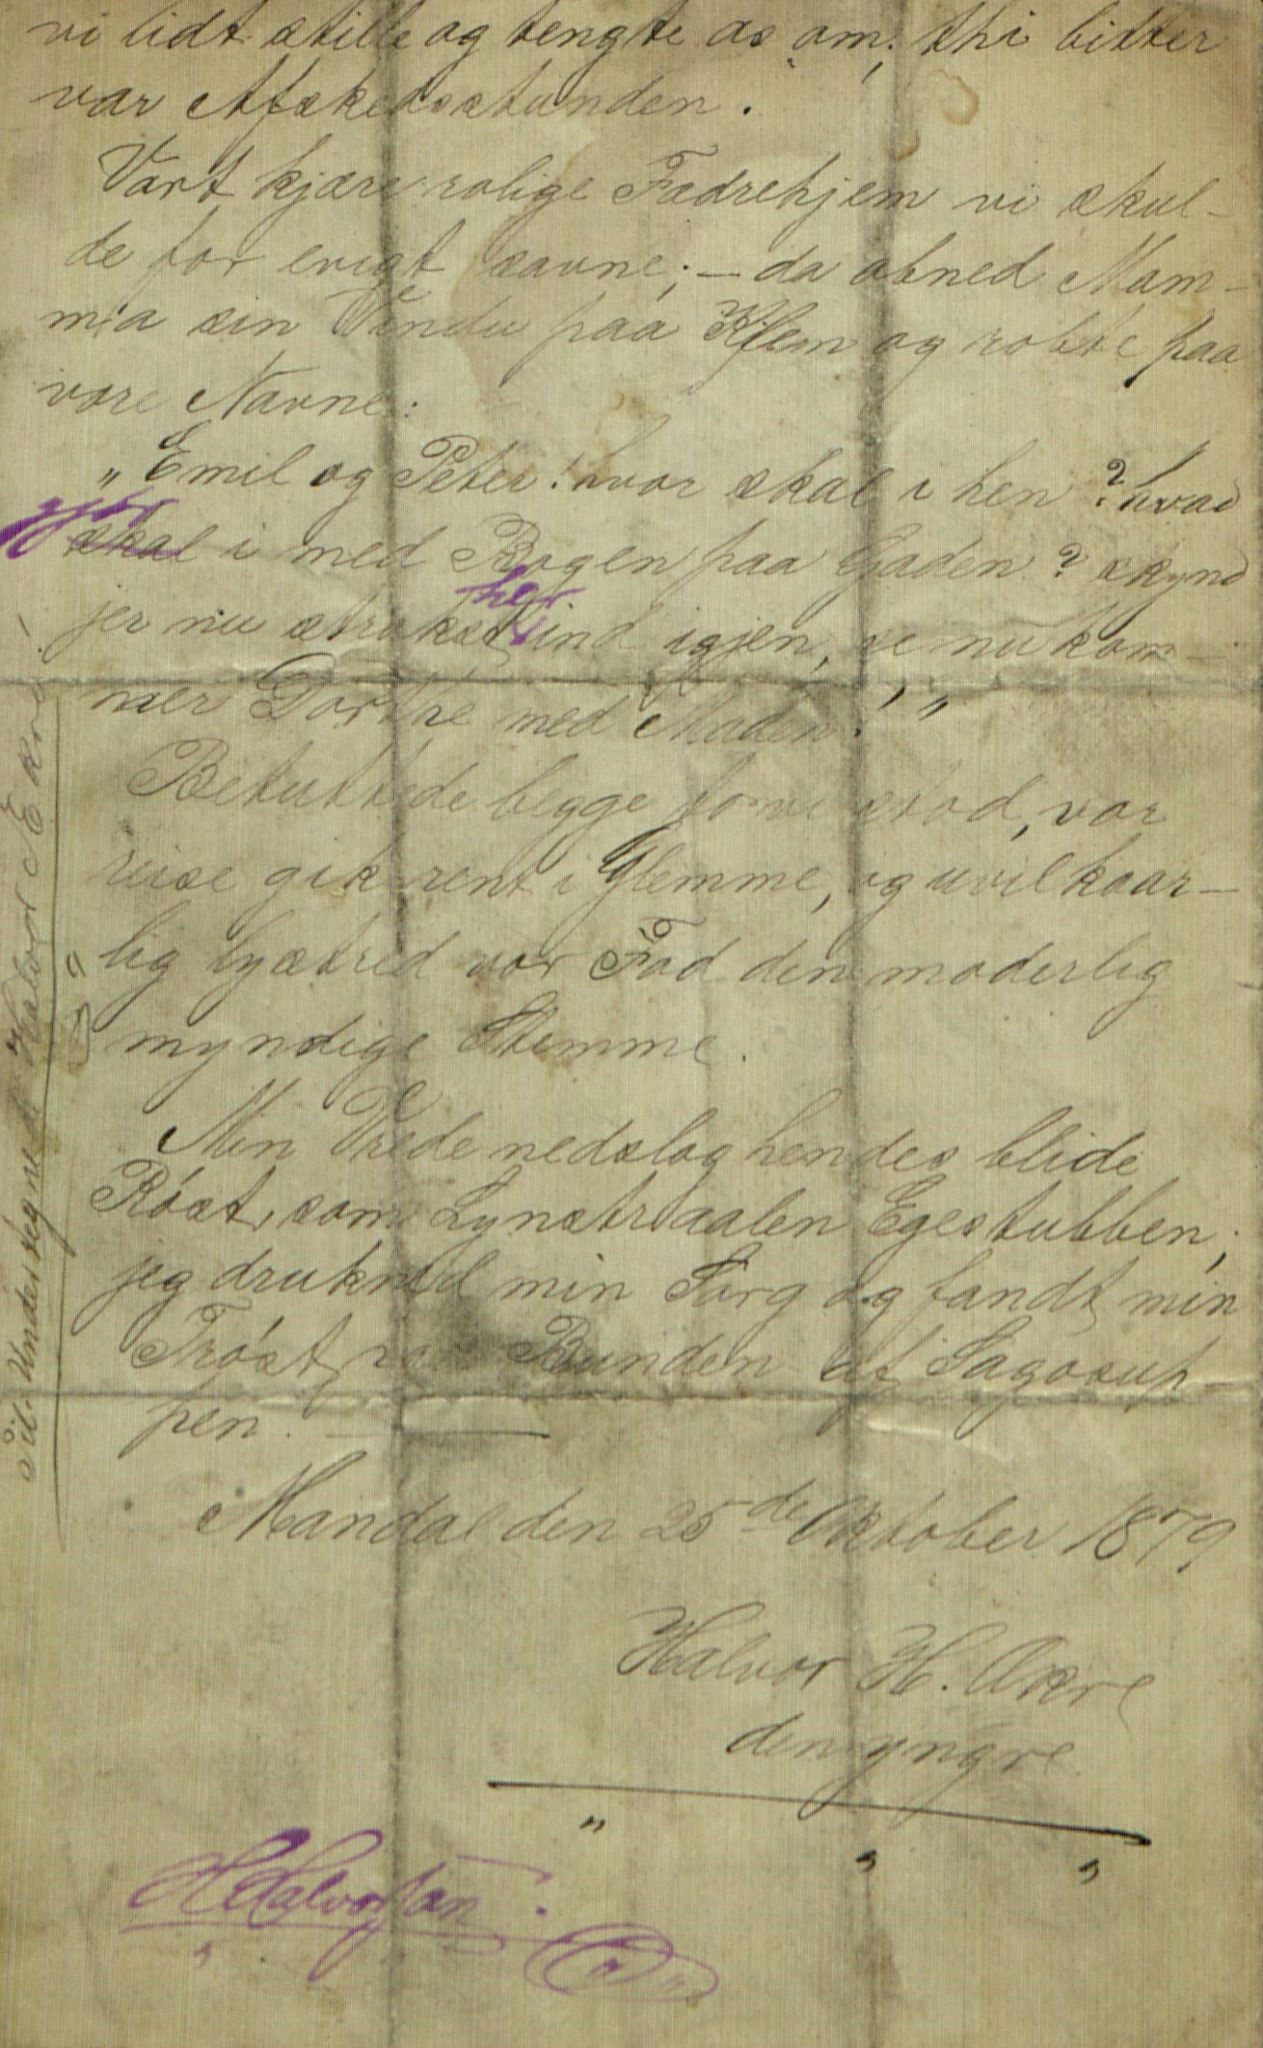 vi lidt stille og tengte os om; thi bitter
var Afskedsstunden.
Vort kjære rolige Fædrehjem vi skul-
de for evigt savne; — da abned Mam-
ma sin Vindu paa Klem og robte paa
vore Navne:
„Emil og Peter! hvor skal i hen? hvad
gjør
skal i med Bogen paa Gaden? skynd
her
jer nu strakst ind igjen, se nu kom-
mer Dorthe med Maden!"
Betuttede begge for vi stod, vor
reise gik rent i Glemme, og uvilkaar-
lig lystred vor Fod den moderlig
myndige Stemme.
Min Vrede nedslog hendes blide
Røst, som Lynstraalen Egestubben;
jeg druknед min Sorg og fandt min
Trøst Bunden af Sagosup-
pen.
Mandal den 25de Oktober 1879
Halvor H. Akre
den yngre
H Halvorsen.
Til Undertegnede Halvor Ekre!